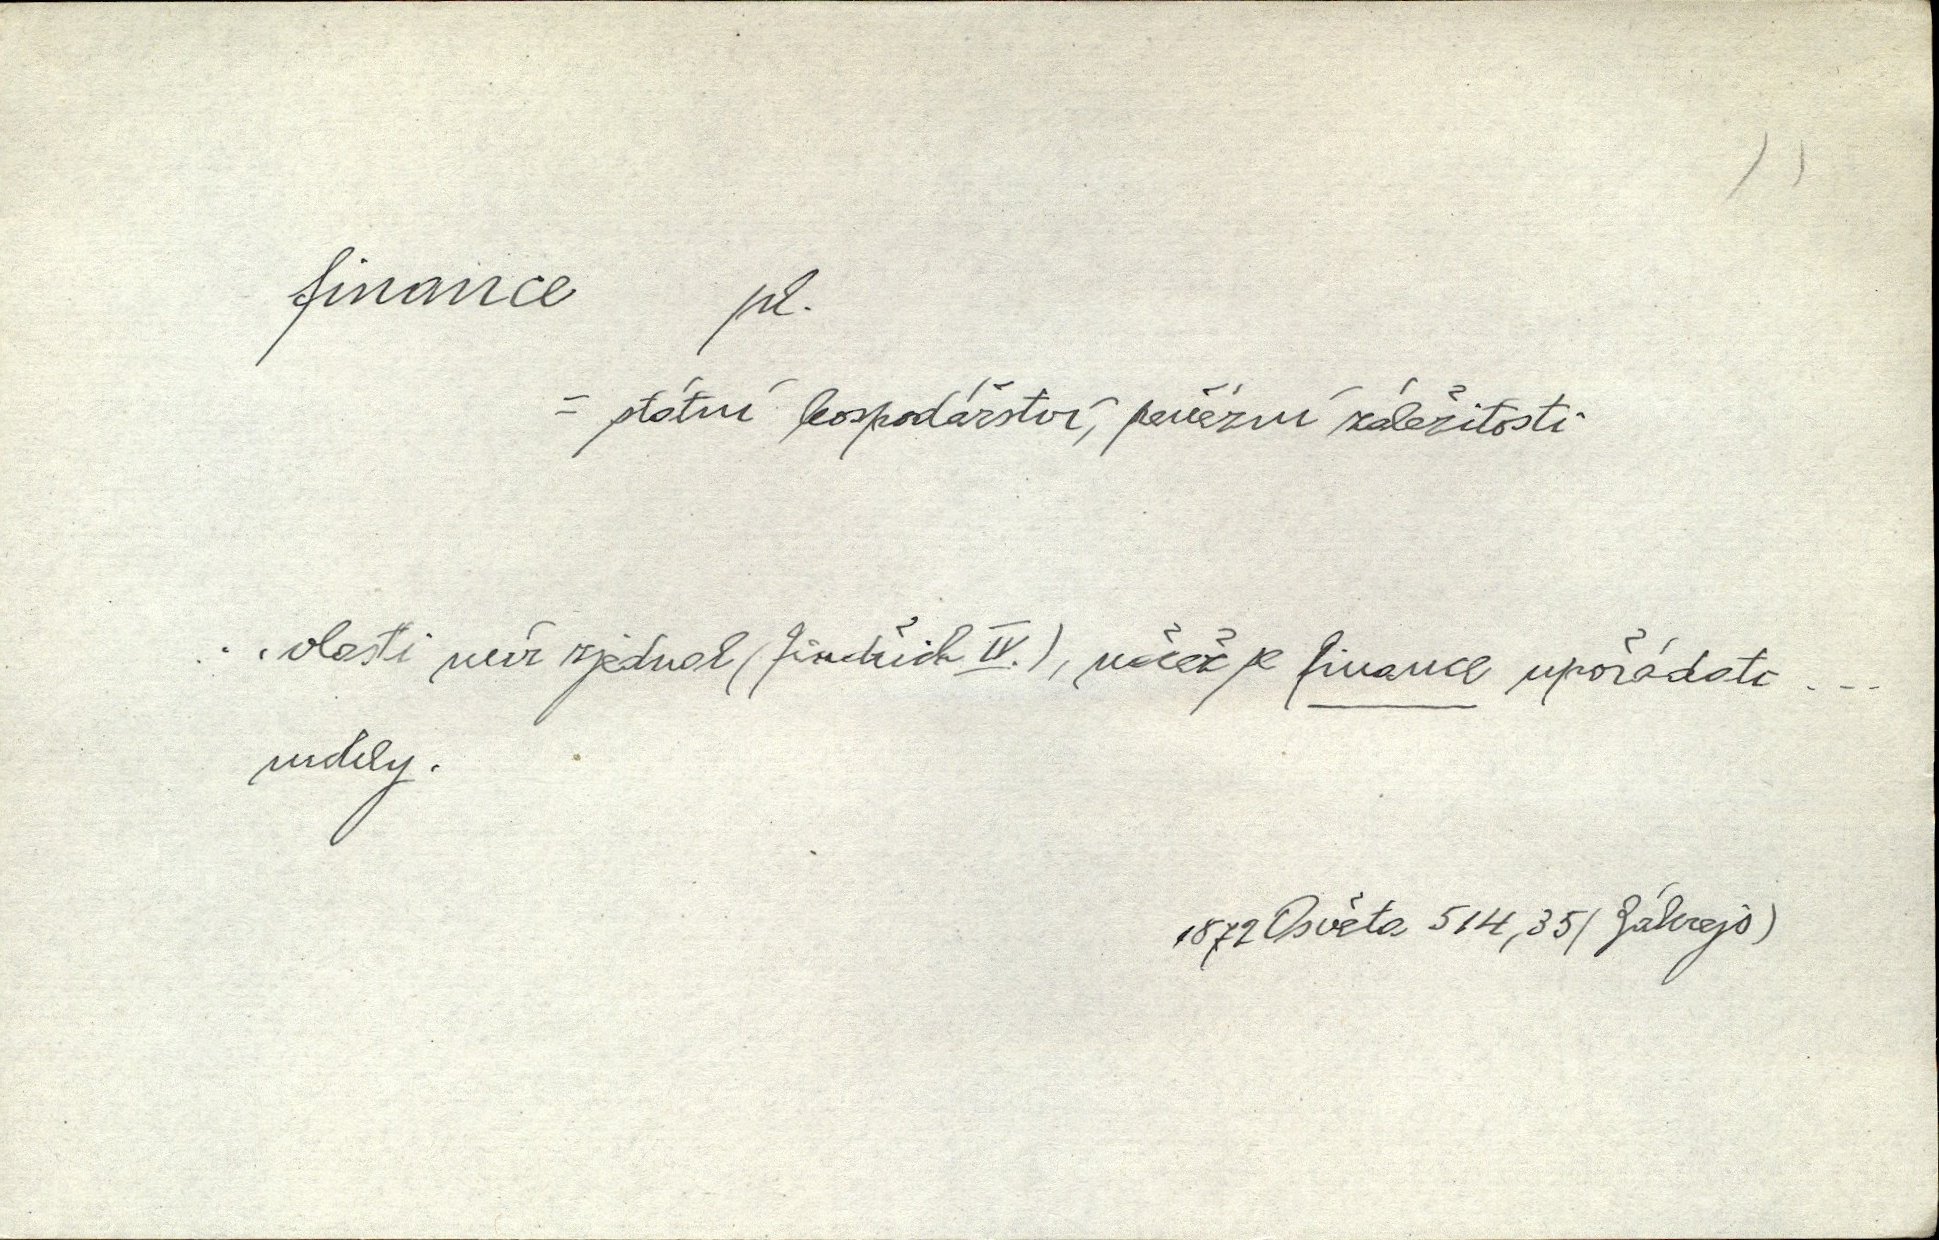 finance pl.
= státní hospodářství, peněžní záležitosti
... vlasti mír zjednal (Jindřich IV.), načež je finance upořádati ...
1872 Osvěta 514, 35 (Zákrejs)